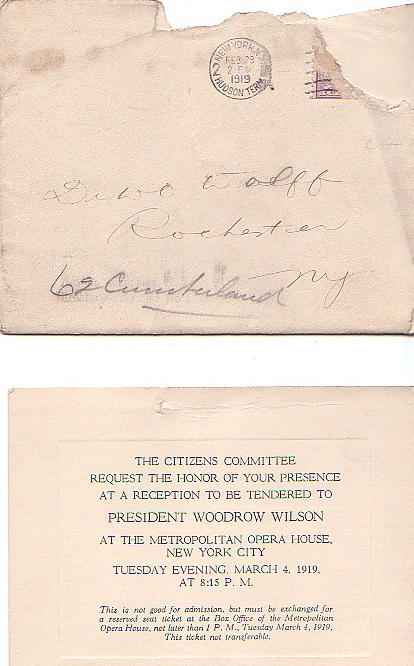 NEW YORK, N.Y.
FEB 28
2 PM
1919
HUDSON TERM.
Wolff
Rochester
NY
62 Cumberland
THE CITIZENS COMMITTEE
REQUEST THE HONOR OF YOUR PRESENCE
AT A RECEPTION TO BE TENDERED TO
PRESIDENT WOODROW WILSON
AT THE METROPOLITAN OPERA HOUSE,
NEW YORK CITY
TUESDAY EVENING, MARCH 4, 1919,
AT 8:15 P. M.
This is not good for admission, but must be exchanged for
a reserved seat ticket at the Box Office of the Metropolitan
Opera House, not later than 1 P. M., Tuesday March 4, 1919.
This ticket not transferable.